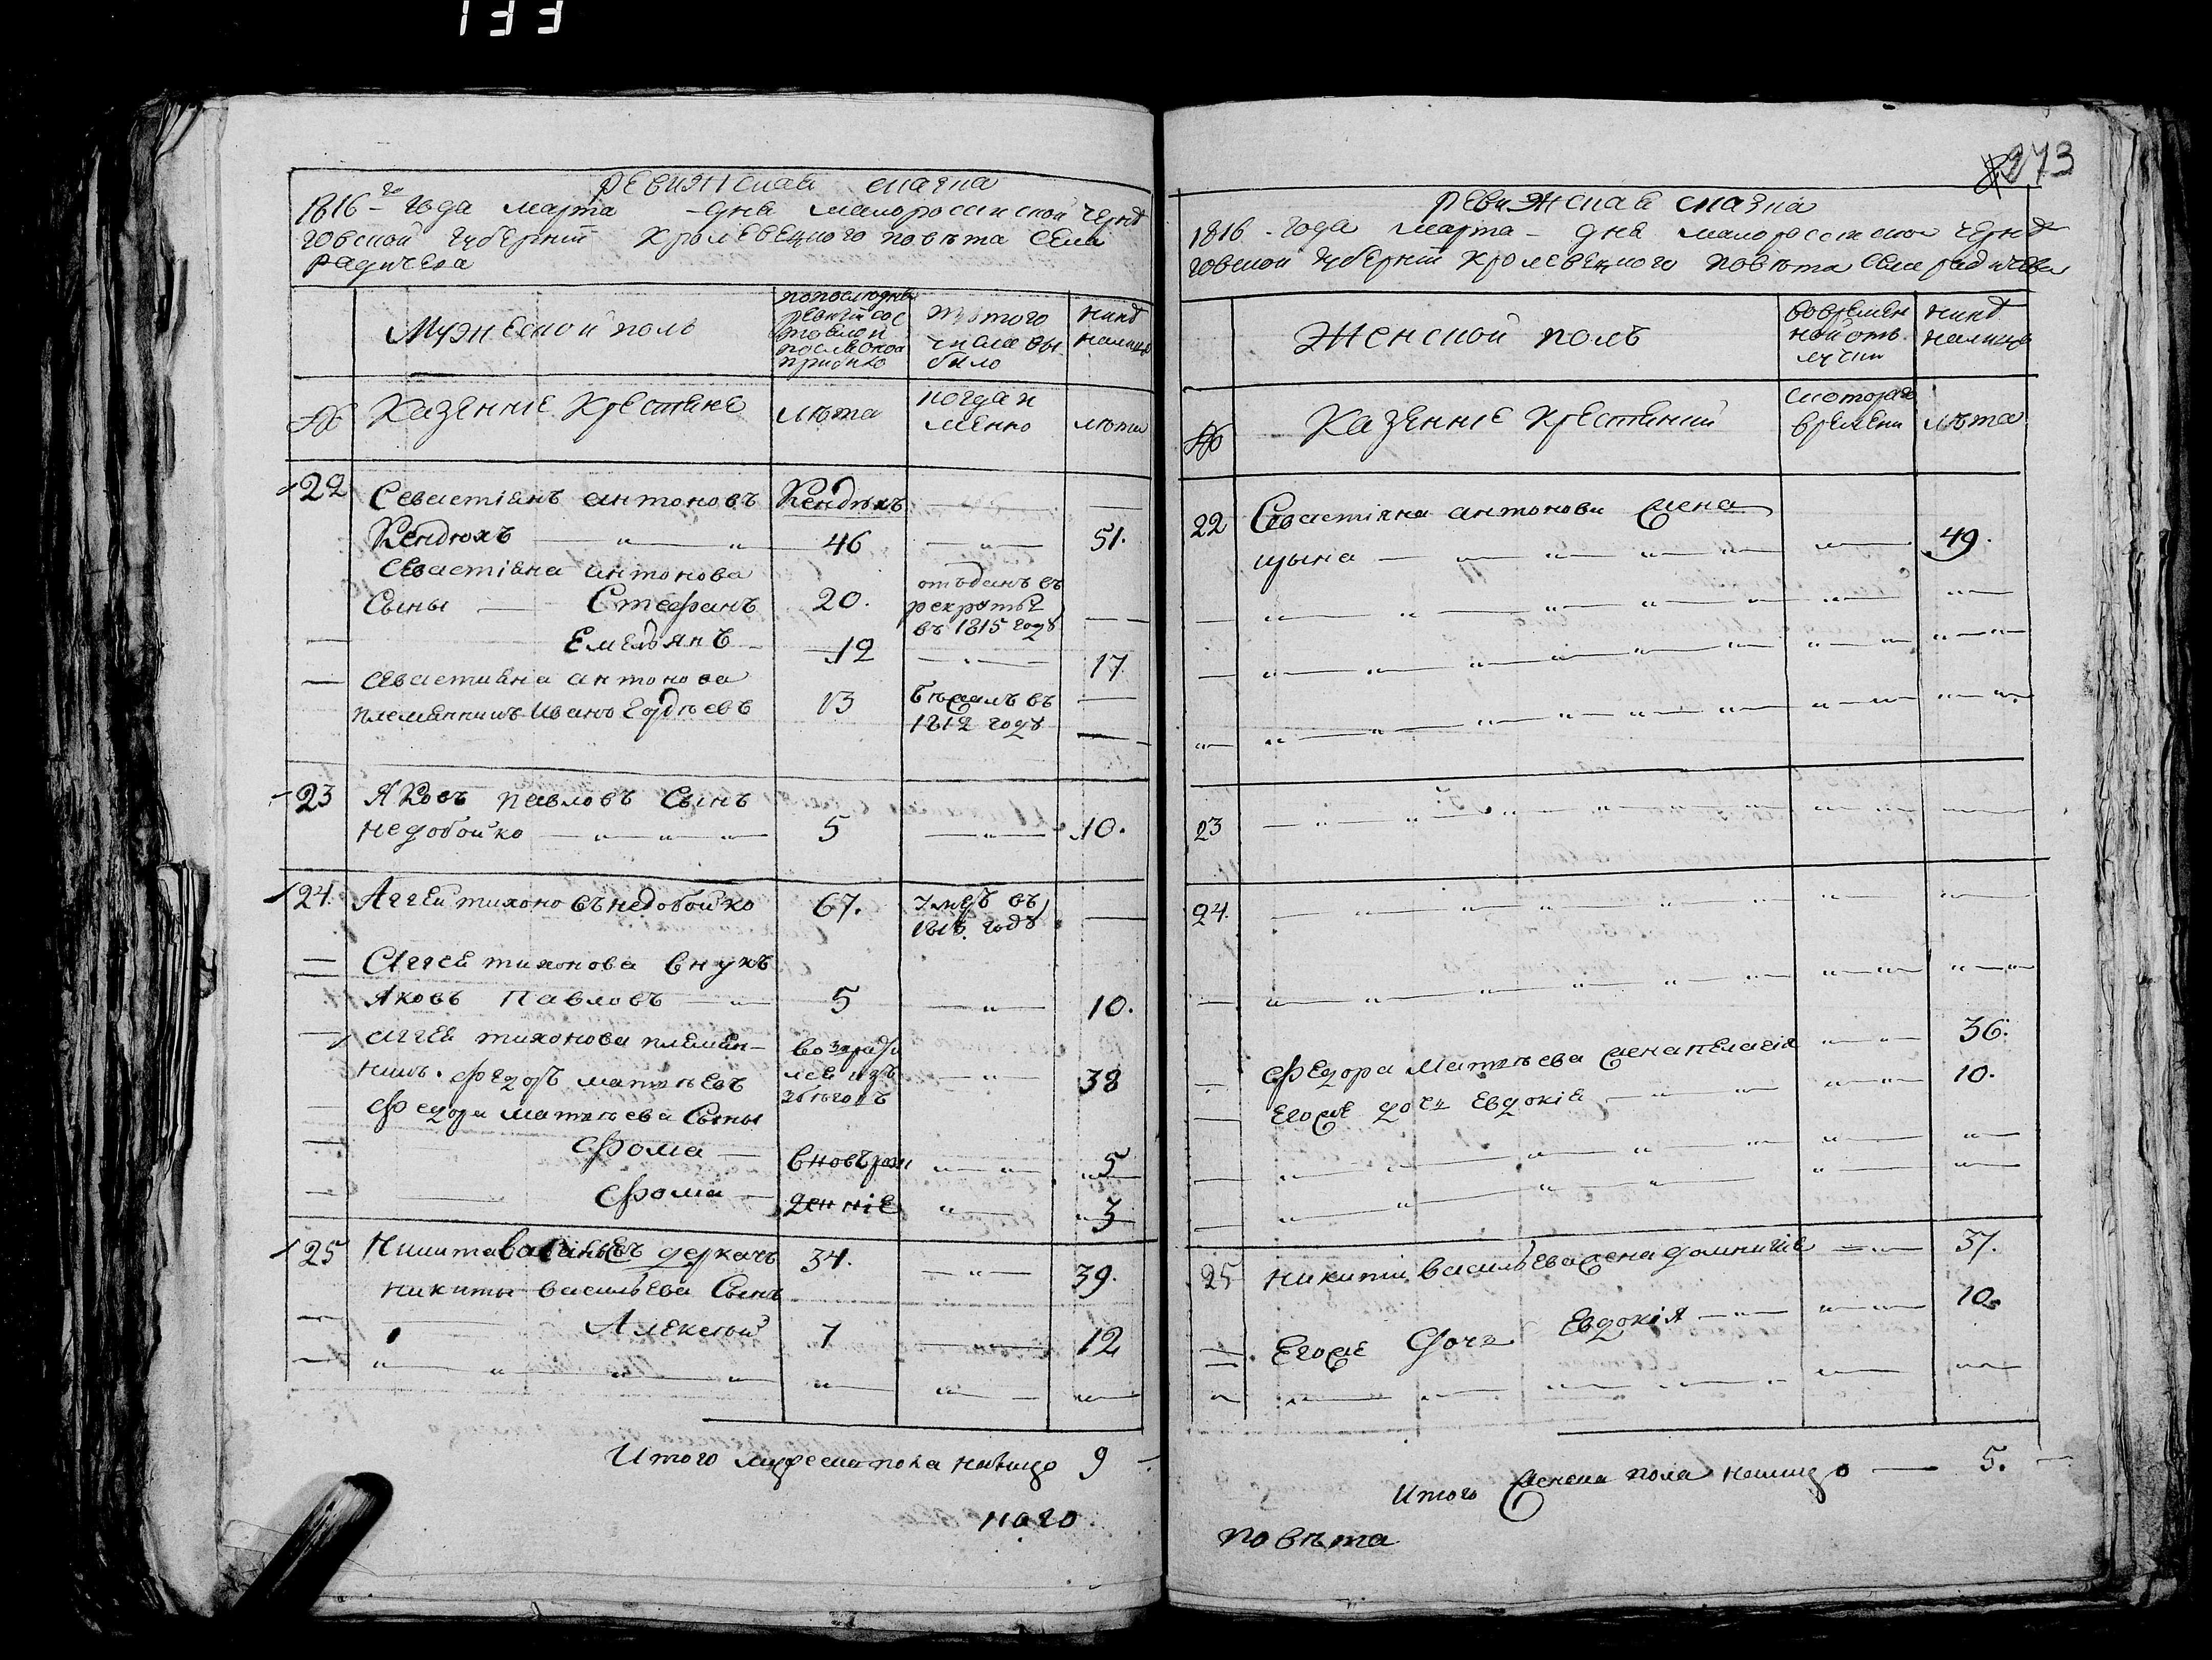 133
ревижская сказка
1816-го года марта — дня малоросийской черни
говской губернии кролевецкого повѣта села
радичева
Мужеской полъ
попоследней
ревизии сос
тояло и
после оной
прибыло
Изтого
числа вы
было
нине
налицо
№
Казенніе крестяне
лѣта
когда и
менно
лѣта
22
Севастіянъ антоновъ
Кендюхъ
Кендюхъ
46
51.
Севастіяна антонова
Сыны Стефанъ
20.
отъданъ въ
рекруты
въ 1815 году
Емельянъ
12
17
Севастияна антонова
племянникъ Иванъ
13
бѣжалъ въ
1812 году
23
Яковъ павловъ Сынъ
недобойко
5
10.
24.
Аггей тихоновъ недобойко
67.
умеръ въ
году
Аггея тихонова внукъ
Яковъ Павловъ
5
10.
аггея тихонова племян-
никъ. Федоръ матвѣевъ
38
Федора матвѣева Сыны
Фома
вновь рож
5
Фома
денніе
3
25
Никита Васильевъ деркачъ
34.
39.
никиты васильева Сынъ
Алексѣй
7
12
Итого мужеска пола налицо 9
ного
273
ревижская сказка
1816 - года марта - дня малоросийской черни
говской губернии кролевецкого повѣта села радичева
Женской полъ
вовремен
ной отъ
лучки
нине
налицо
№
Казенніе крестянки
скоторого
времени
лѣта
22
Севастіяна антонова жена
49.
23
24.
Федора Матвѣева жена пелагія
36.
Егоже дочь Евдокія
10.
25
никиты васильева жена
37.
Егоже дочь Евдокія
10.
Итого женска пола налицо 5.
повѣта